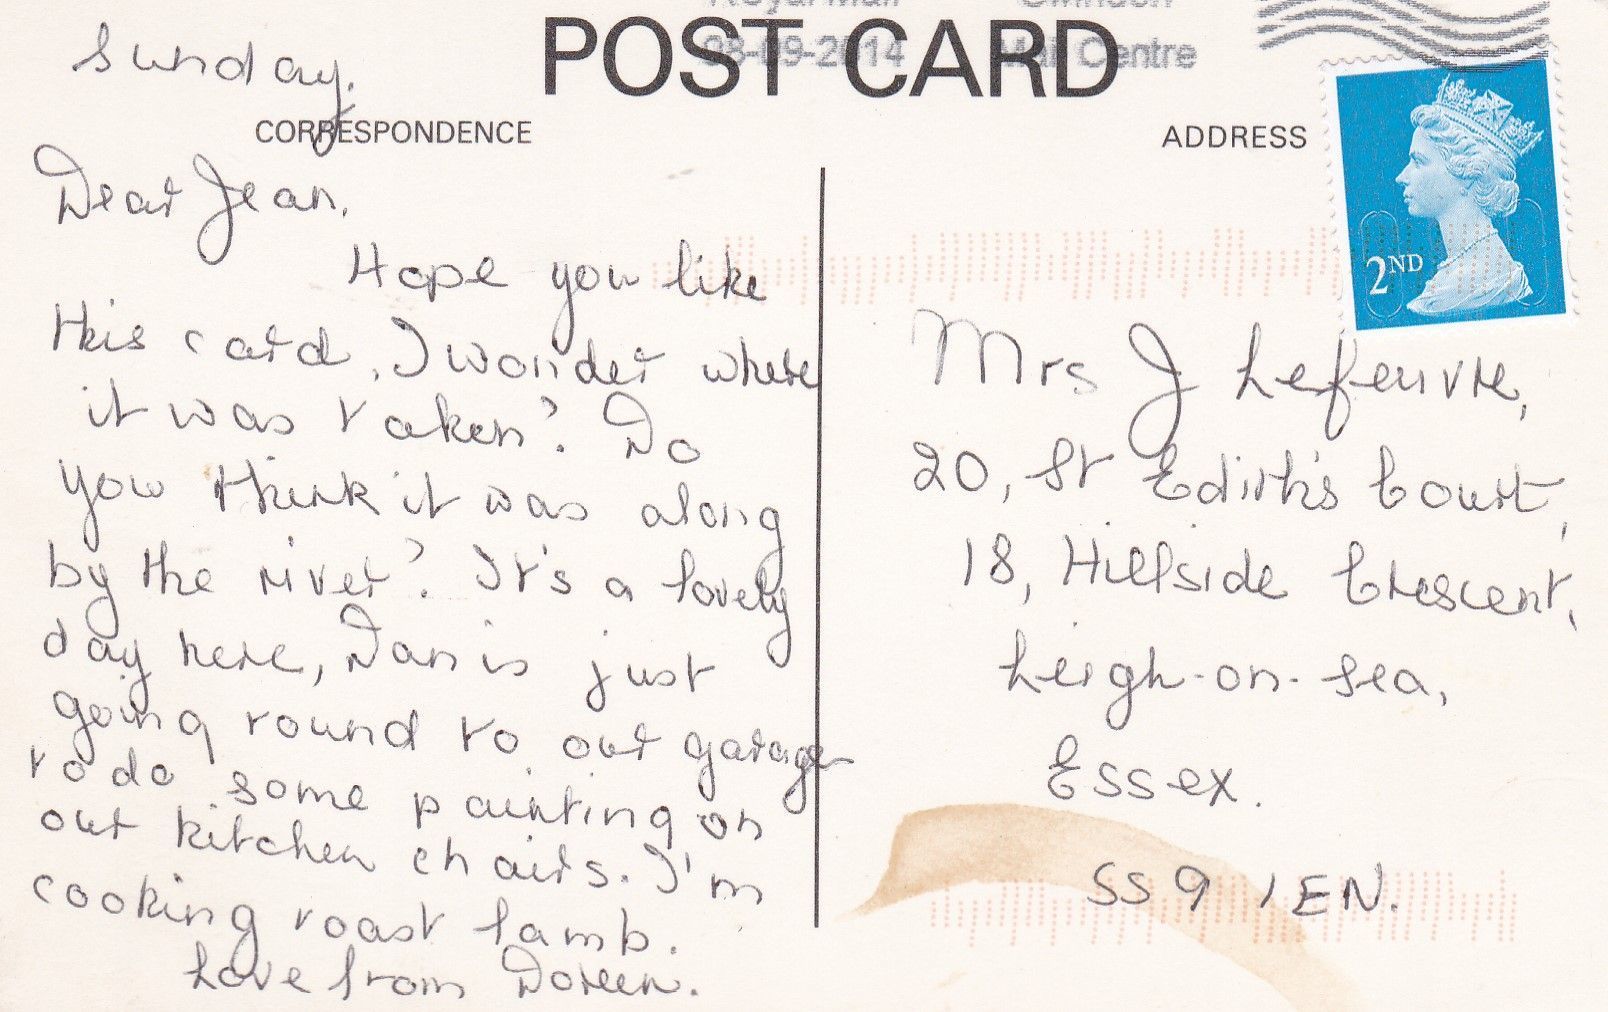 Royal Mail Swindon
08-09-2014 Mail Centre
POST CARD
Sunday.
CORRESPONDENCE
Dear Jean,
Hope you like
this card, I wonder where
it was taken? Do
you think it was along
by the river? It's a lovely
day here, Dan is just
going round to our garage
to do some painting on
our kitchen chairs. I'm
cooking roast lamb.
Love from Doreen.
ADDRESS
2ND
Mrs J Lefeuvre,
20, St Edith's Court,
18, Hillside Crescent,
Leigh-on-Sea,
Essex.
SS9 1EN.